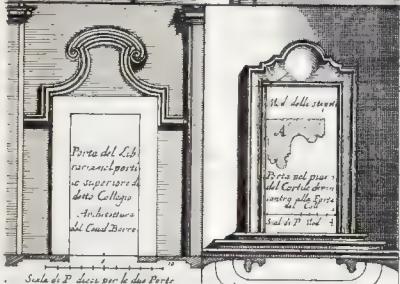 Porta del Lib
raria nel porti
co superiore di
detto Collegio
Architettura
del Caval Borro.
Scala di P dieci per le due Porte
M. d. della stepso
A
Porta nel piano
del Cortile
contro alla Porta
del Coll
Scal di P Mod 4